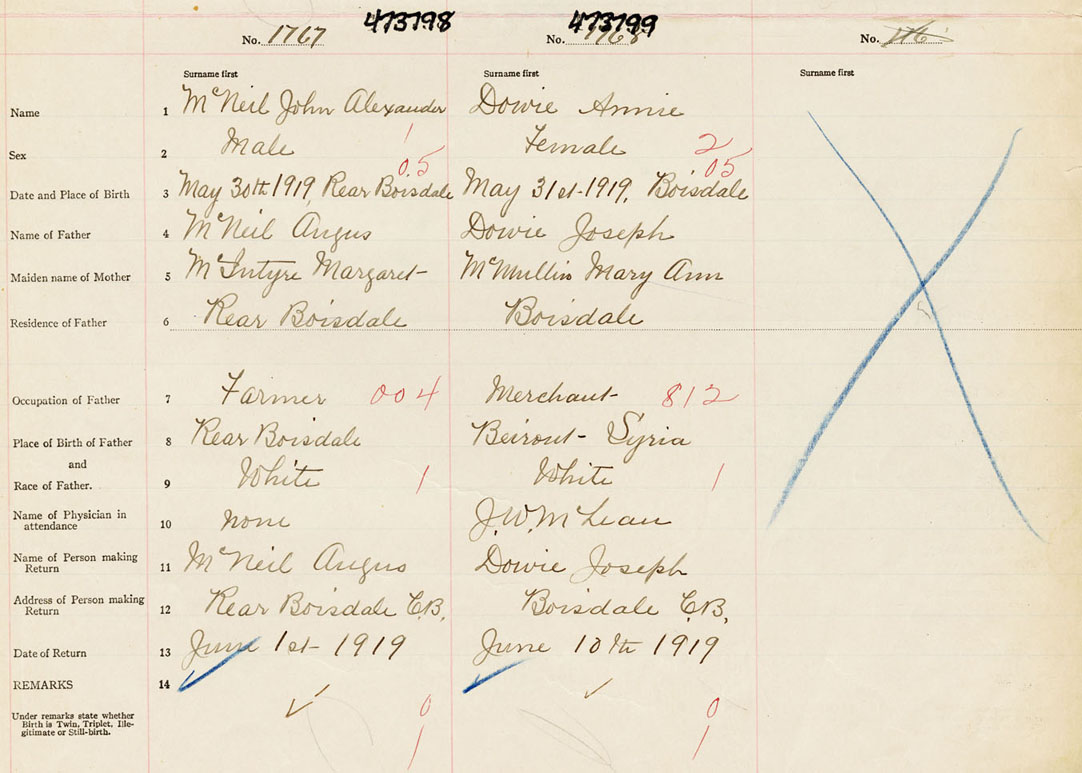 473798 473799
No. 1767 No. 1768 No.
Surname first Surname first Surname first
Name 1 McNeil John Alexander Dowie Annie
1
Sex 2 Male Female 2
05 05
Date and Place of Birth 3 May 30th 1919, Rear Boisdale May 31st 1919, Boisdale
Name of Father 4 McNeil Angus Dowie Joseph
Maiden name of Mother 5 McIntyre Margaret McMullin Mary Ann
Residence of Father 6 Rear Boisdale Boisdale
Occupation of Father 7 Farmer 004 Merchant 812
Place of Birth of Father 8 Rear Boisdale Beirout - Syria
and
Race of Father. 9 White 1 White 1
Name of Physician in
attendance 10 none J.W. McLean
Name of Person making
Return 11 McNeil Angus Dowie Joseph
Address of Person making
Return 12 Rear Boisdale C.B. Boisdale C.B.
Date of Return 13 June 1st 1919 June 10th 1919
REMARKS 14
✓ ✓
Under remarks state whether
Birth is Twin, Triplet, Ille-
gitimate or Still-birth.
0 0
1 1